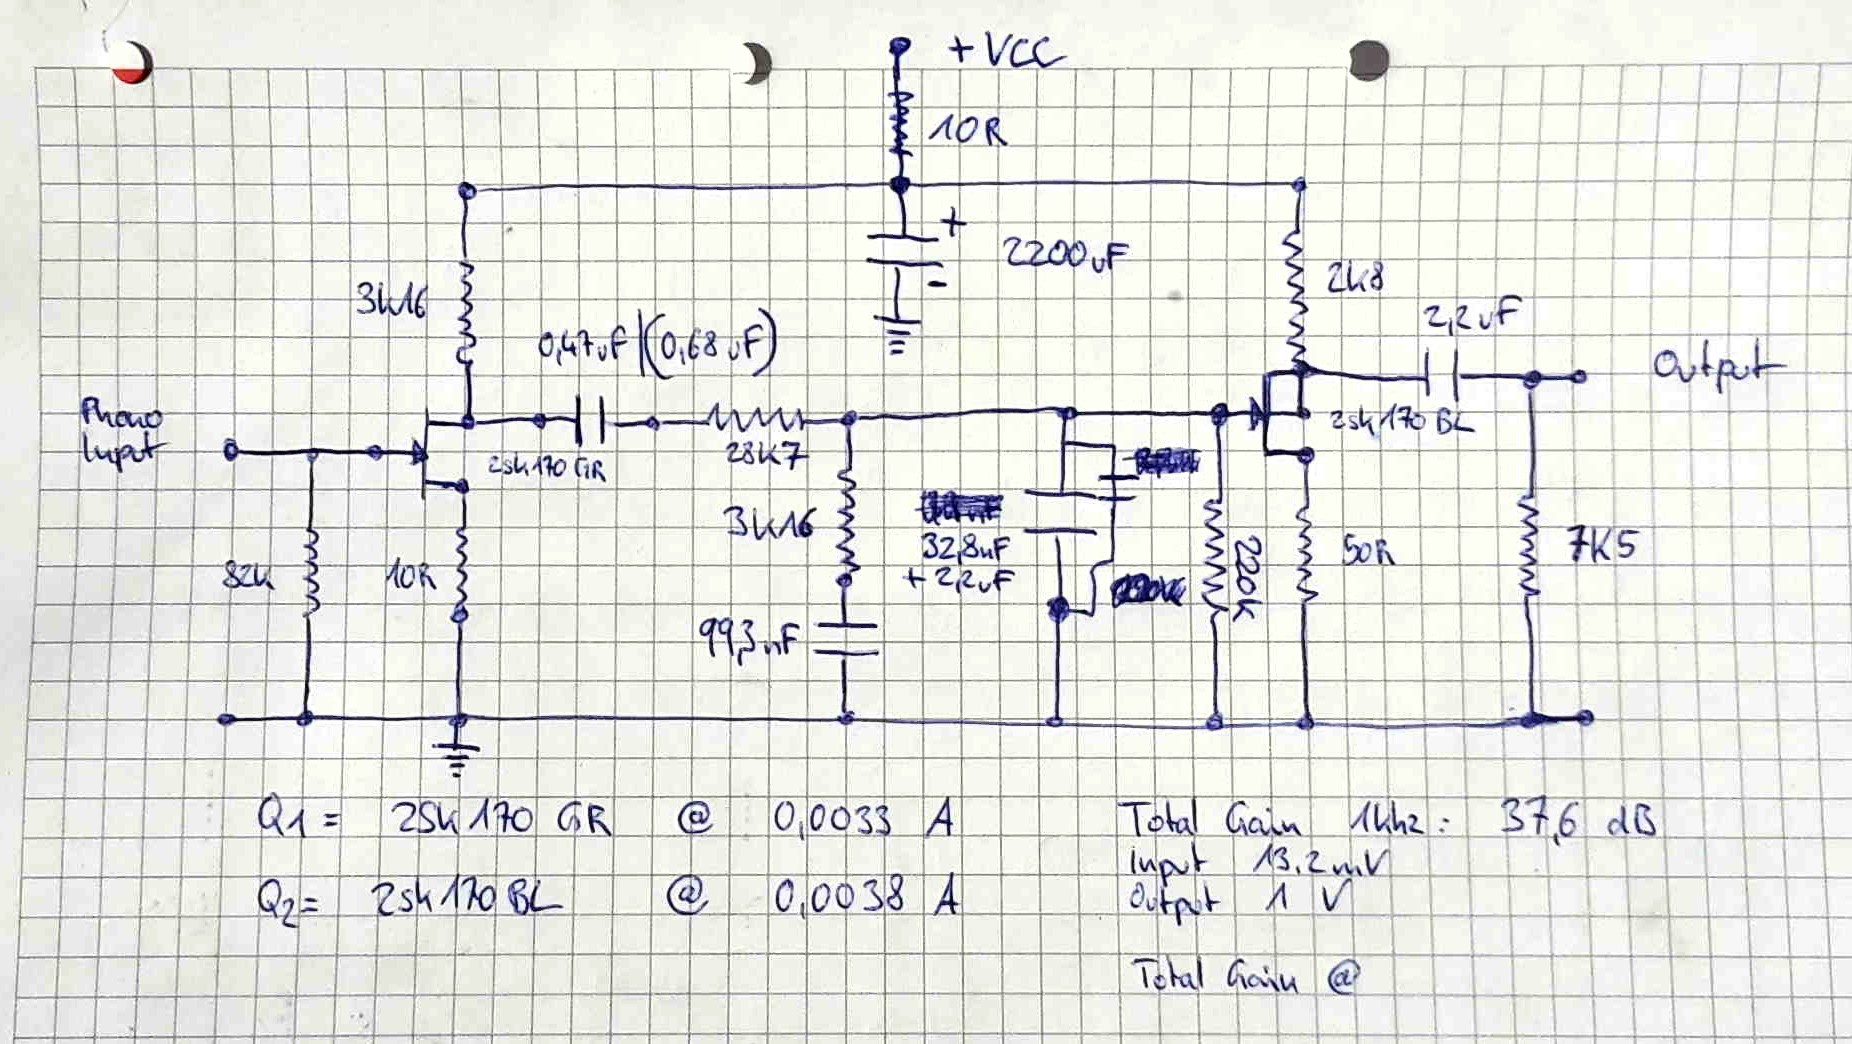 +VCC
10R
+
2200uF
-
3k16
2k8
0,47uF|(0,68uF)
2,2uF
Output
Phono
Input
2sk170 GR
28K7
2sk170 BL
3k16
32,8nF
+ 2,2uF
82k
10R
220k
50R
7K5
99,3nF
Q1 = 2SK170 GR @ 0,0033 A
Q2 = 2sk170 BL @ 0,0038 A
Total Gain 1khz: 37,6 dB
Input 13.2mV
Output 1 V
Total Gain @